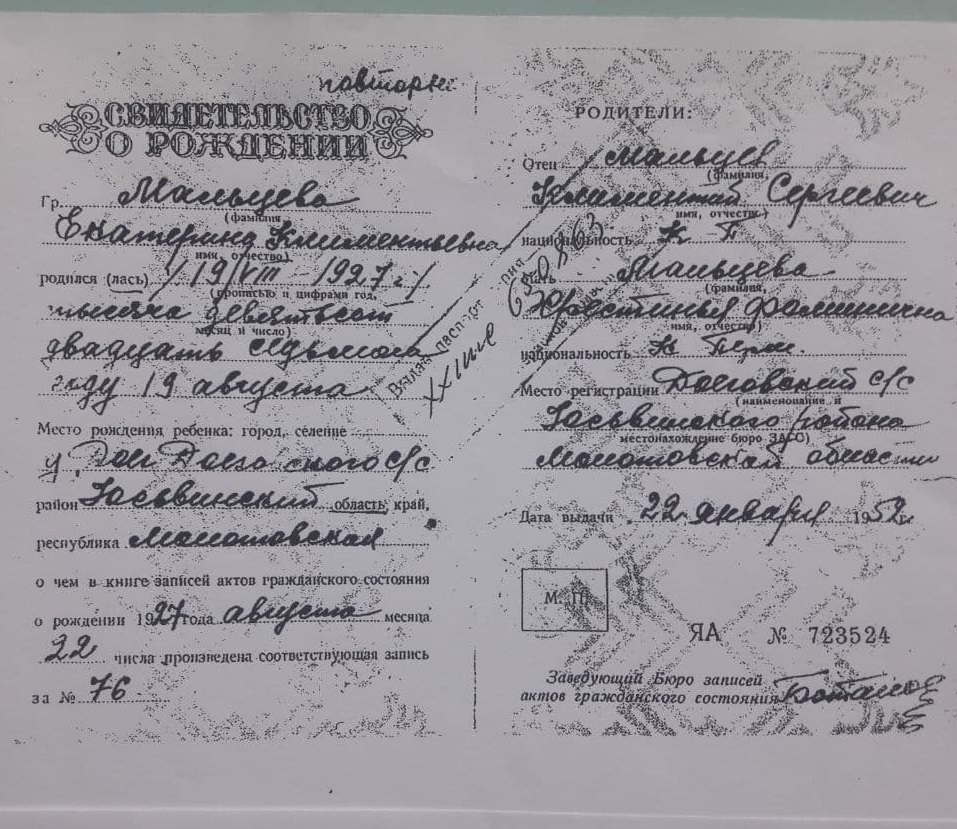 повторн
СВИДЕТЕЛЬСТВО
О РОЖДЕНИИ
Гр. Мальцева
(фамилия,
Екатерина Климентьевна
имя, отчество)
родился (лась) 19/VIII - 1927 г.
(прописью и цифрами год,
тысяча девятьсот
месяц и число)
двадцать седьмого
году 19 августа
Место рождения ребенка: город, селение
с/с
район Юсьвинский область, край,
республика Молотовская
о чем в книге записей актов гражданского состояния
о рождении 1927 года августа месяца
22 числа произведена соответствующая запись
за № 76
Выдан паспорт
650863
РОДИТЕЛИ:
Отец Мальцев
(фамилия,
Климентий Сергеевич
имя, отчество)
национальность К П
Мать Мальцева
(фамилия,
Хрестинья
имя, отчество)
национальность К Перм.
Место регистрации Доеговский с/с
(наименование и
Юсьвинского района
местонахождение бюро ЗАГС)
Молотовской области
Дата выдачи 22 января 1952 г.
М. П.
ЯА № 723524
Заведующий Бюро записей
актов гражданского состояния